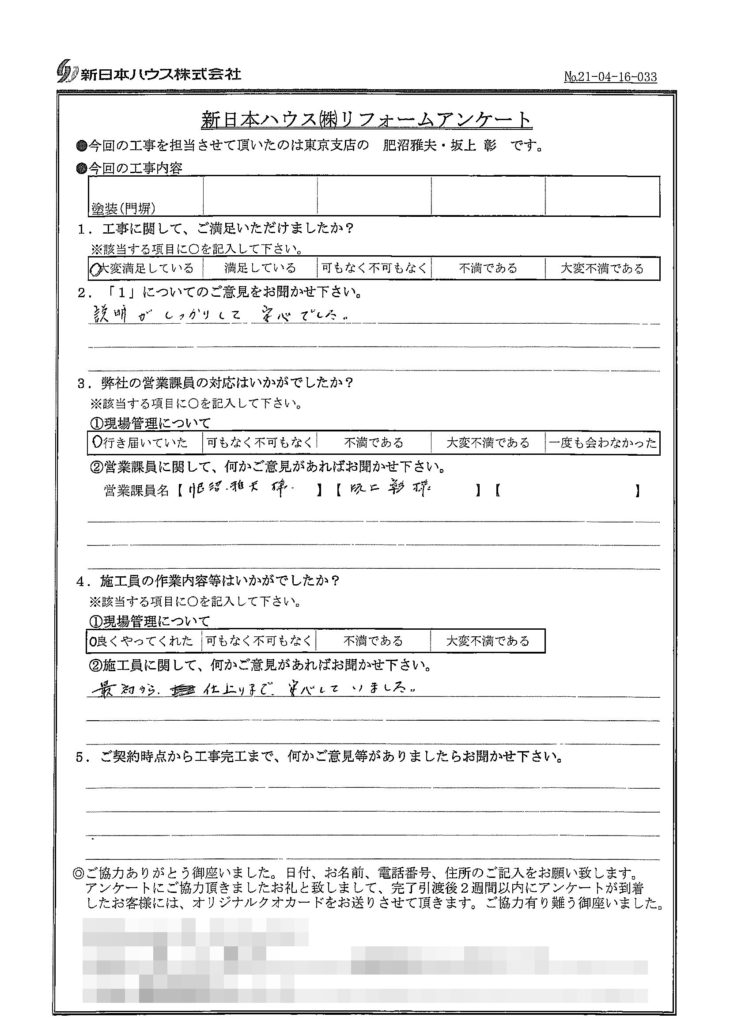 新日本ハウス株式会社
№21-04-16-033
新日本ハウス㈱リフォームアンケート
●今回の工事を担当させて頂いたのは東京支店の 肥沼雅夫・坂上 彰 です。
●今回の工事内容
塗装(門塀)
1．工事に関して、ご満足いただけましたか？
※該当する項目に○を記入して下さい。
○大変満足している 満足している 可もなく不可もなく 不満である 大変不満である
2．「1」についてのご意見をお聞かせ下さい。
説明がしっかりして安心でした。
3．弊社の営業課員の対応はいかがでしたか？
※該当する項目に○を記入して下さい。
①現場管理について
○行き届いていた 可もなく不可もなく 不満である 大変不満である 一度も会わなかった
②営業課員に関して、何かご意見があればお聞かせ下さい。
営業課員名【肥沼雅夫様 】【坂上彰様 】【 】
4．施工員の作業内容等はいかがでしたか？
※該当する項目に○を記入して下さい。
①現場管理について
○良くやってくれた 可もなく不可もなく 不満である 大変不満である
②施工員に関して、何かご意見があればお聞かせ下さい。
最初から 仕上りまで 安心していました。
5．ご契約時点から工事完工まで、何かご意見等がありましたらお聞かせ下さい。
◎ご協力ありがとう御座いました。日付、お名前、電話番号、住所のご記入をお願い致します。
アンケートにご協力頂きましたお礼と致しまして、完了引渡後２週間以内にアンケートが到着
したお客様には、オリジナルクオカードをお送りさせて頂きます。ご協力有り難う御座いました。